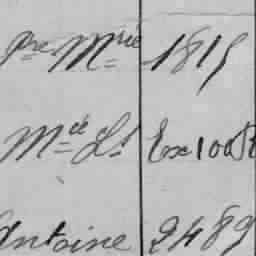 Pre Mrie 1815
Mde Lt Ex100R
Antoine 2489